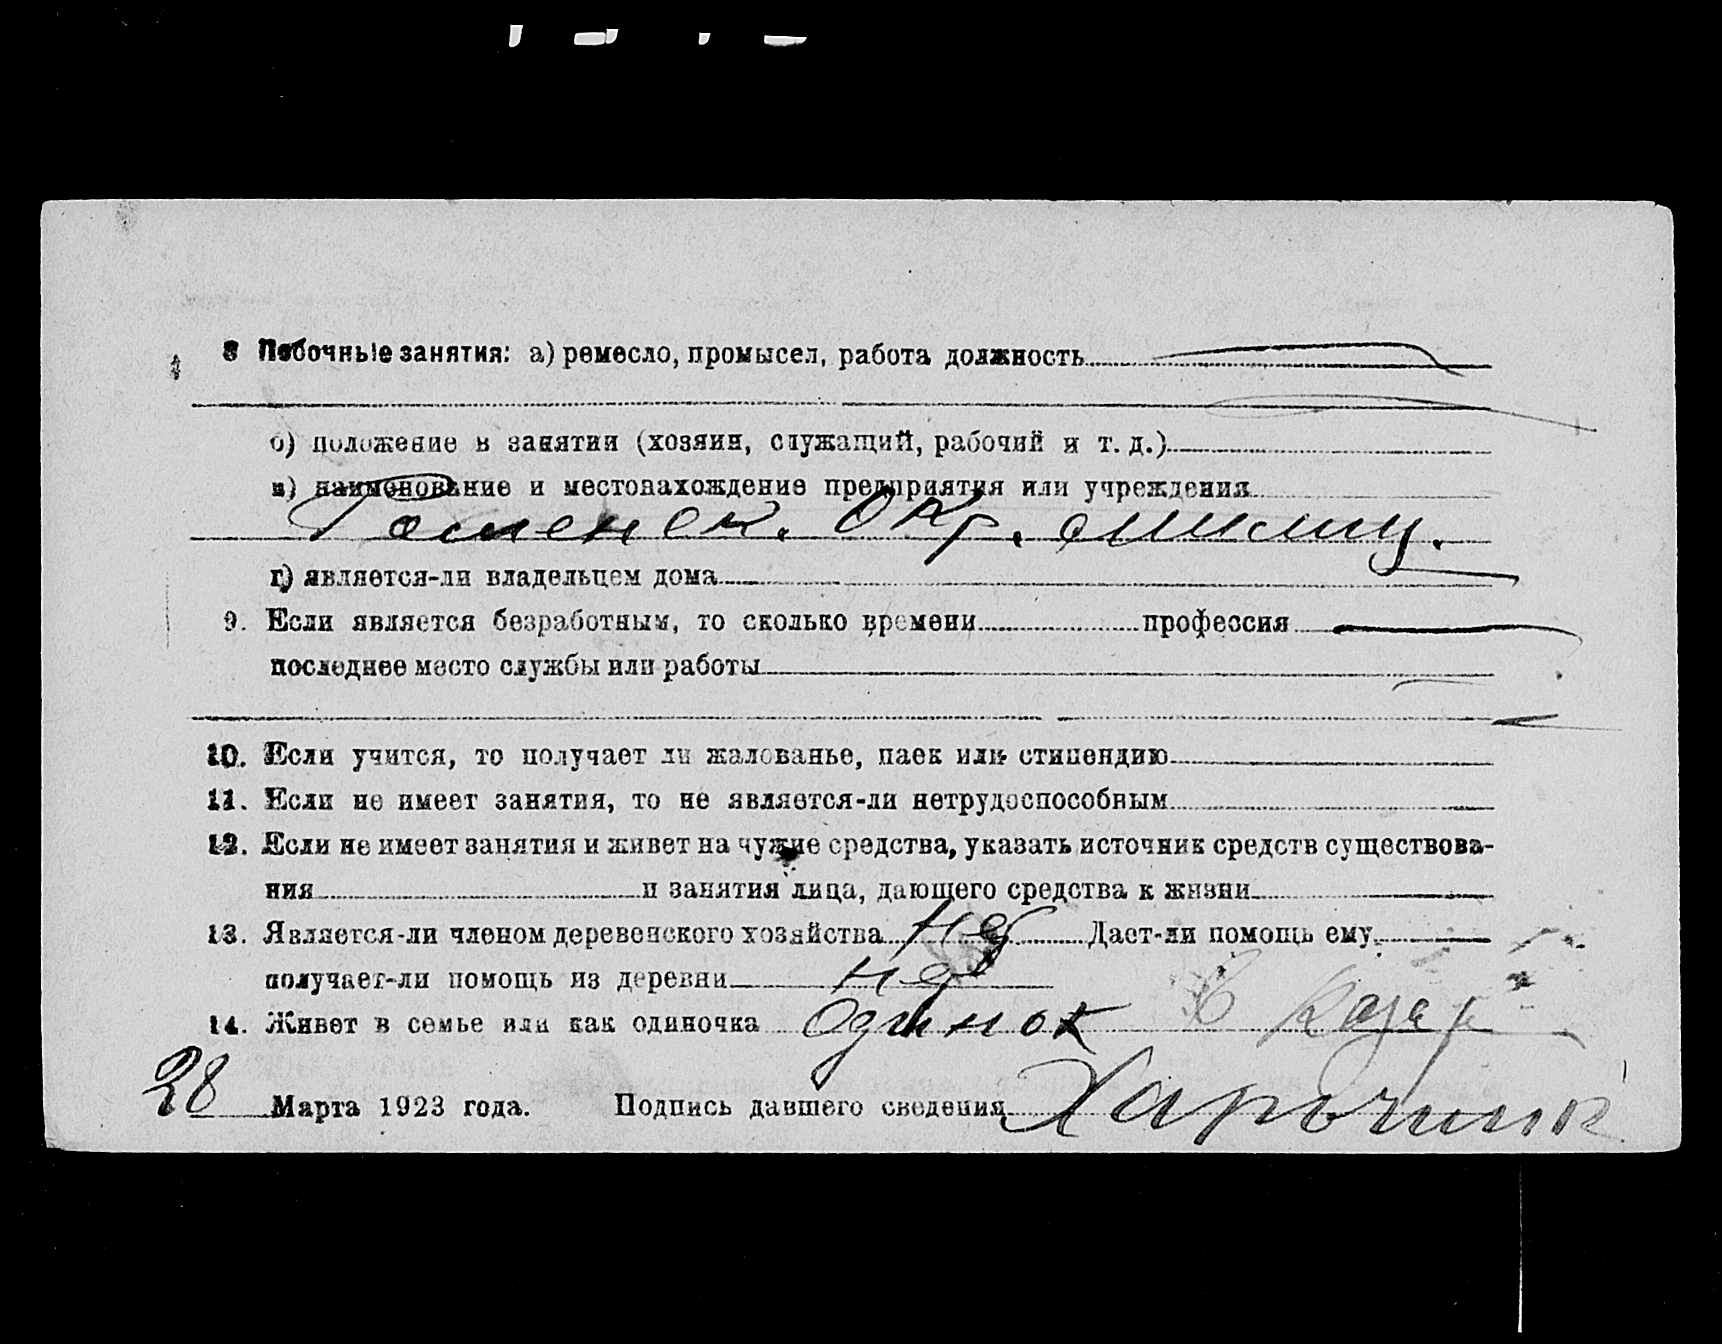 8 Побочные занятия: а) ремесло, промысел, работа должность
б) положение в занятии (хозяин, служащий, рабочий и т. д.)
в) наименование и местонахождение предприятия или учреждения
Окр. милиц.
г) является-ли владельцем дома
9. Если является безработным, то сколько времени профессия
последнее место службы или работы
10. Если учится, то получает ли жалованье, паек или стипендию
11. Если не имеет занятия, то не является-ли нетрудоспособным
12. Если не имеет занятия и живет на чужие средства, указать источник средств существова-
ния и занятия лица, дающего средства к жизни
13. Является-ли членом деревенского хозяйства нет Дает-ли помощь ему
получает-ли помощь из деревни нет
14. Живет в семье или как одиночка Одинок
28 Марта 1923 года. Подпись давшего сведения